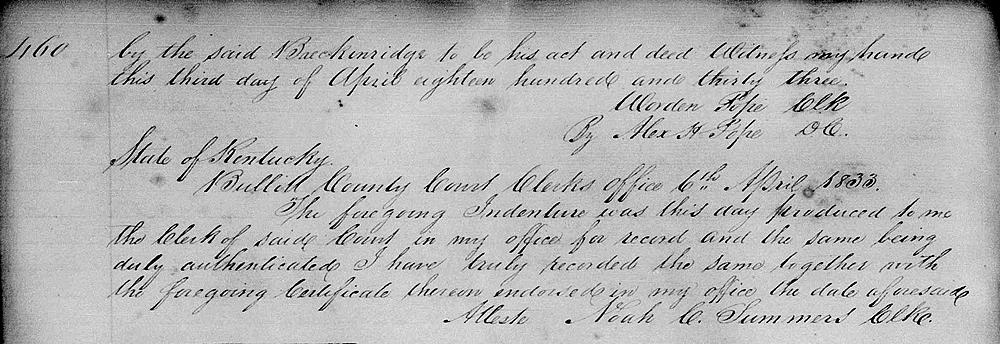 460
by the said Breckenridge to be his act and deed Witness my hand
this third day of April eighteen hundred and thirty three.
Worden Pope Clk
By Alex H Pope DC.
State of Kentucky.
Bullitt County Court Clerks office 6th April 1833.
The foregoing Indenture was this day produced to me
the Clerk of said Court in my office for record and the same being
duly authenticated I have truly recorded the same together with
the foregoing Certificate thereon endorsed in my office the date aforesaid
Atteste Noah C. Summers Clk.